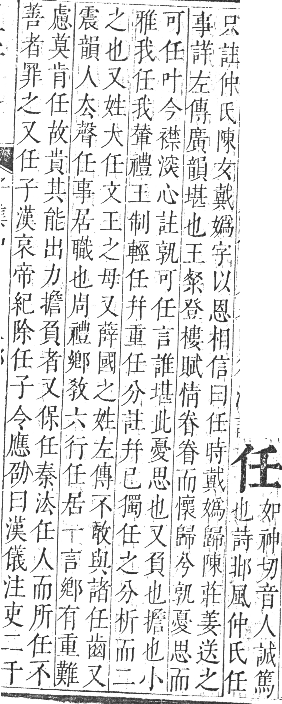 任
如神切音人誠篤
也詩邶風仲氏任
只註仲氏陳女戴嬀字以恩相信曰任時戴嬀歸陳莊姜送之
事詳左傳廣韻堪也王粲登樓賦情眷眷而懷歸兮孰憂思而
可任叶今襟深心註孰可任言誰堪此憂思也又負也擔也小
雅我任我輦禮王制輕任幷重任分註幷已獨任之分析而二
之也又姓大任文王之母又薛國之姓左傳不敢與諸任齒又
震韻人去聲任事居職也周禮鄉敎六行任居一言鄉有重難
慮莫肯任故責其能出力擔負者又保任秦法任人而所任不
善者罪之又任子漢哀帝紀除任子令應劭曰漢儀注吏二千